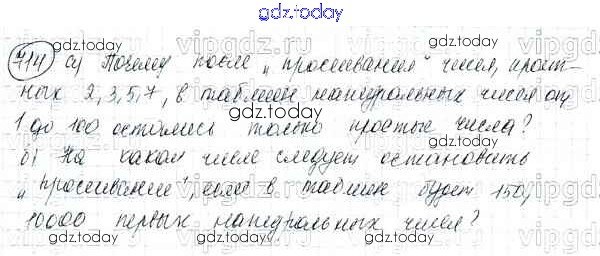 gdz.today
714 а) Почему после „просеивания" чисел, крат-
ных 2, 3, 5, 7, в таблице натуральных чисел от
1 до 100 остались только простые числа?
б) На каком числе следует остановить
„просеивание", если в таблице будет 150,
10000 первых натуральных чисел?
gdz.today